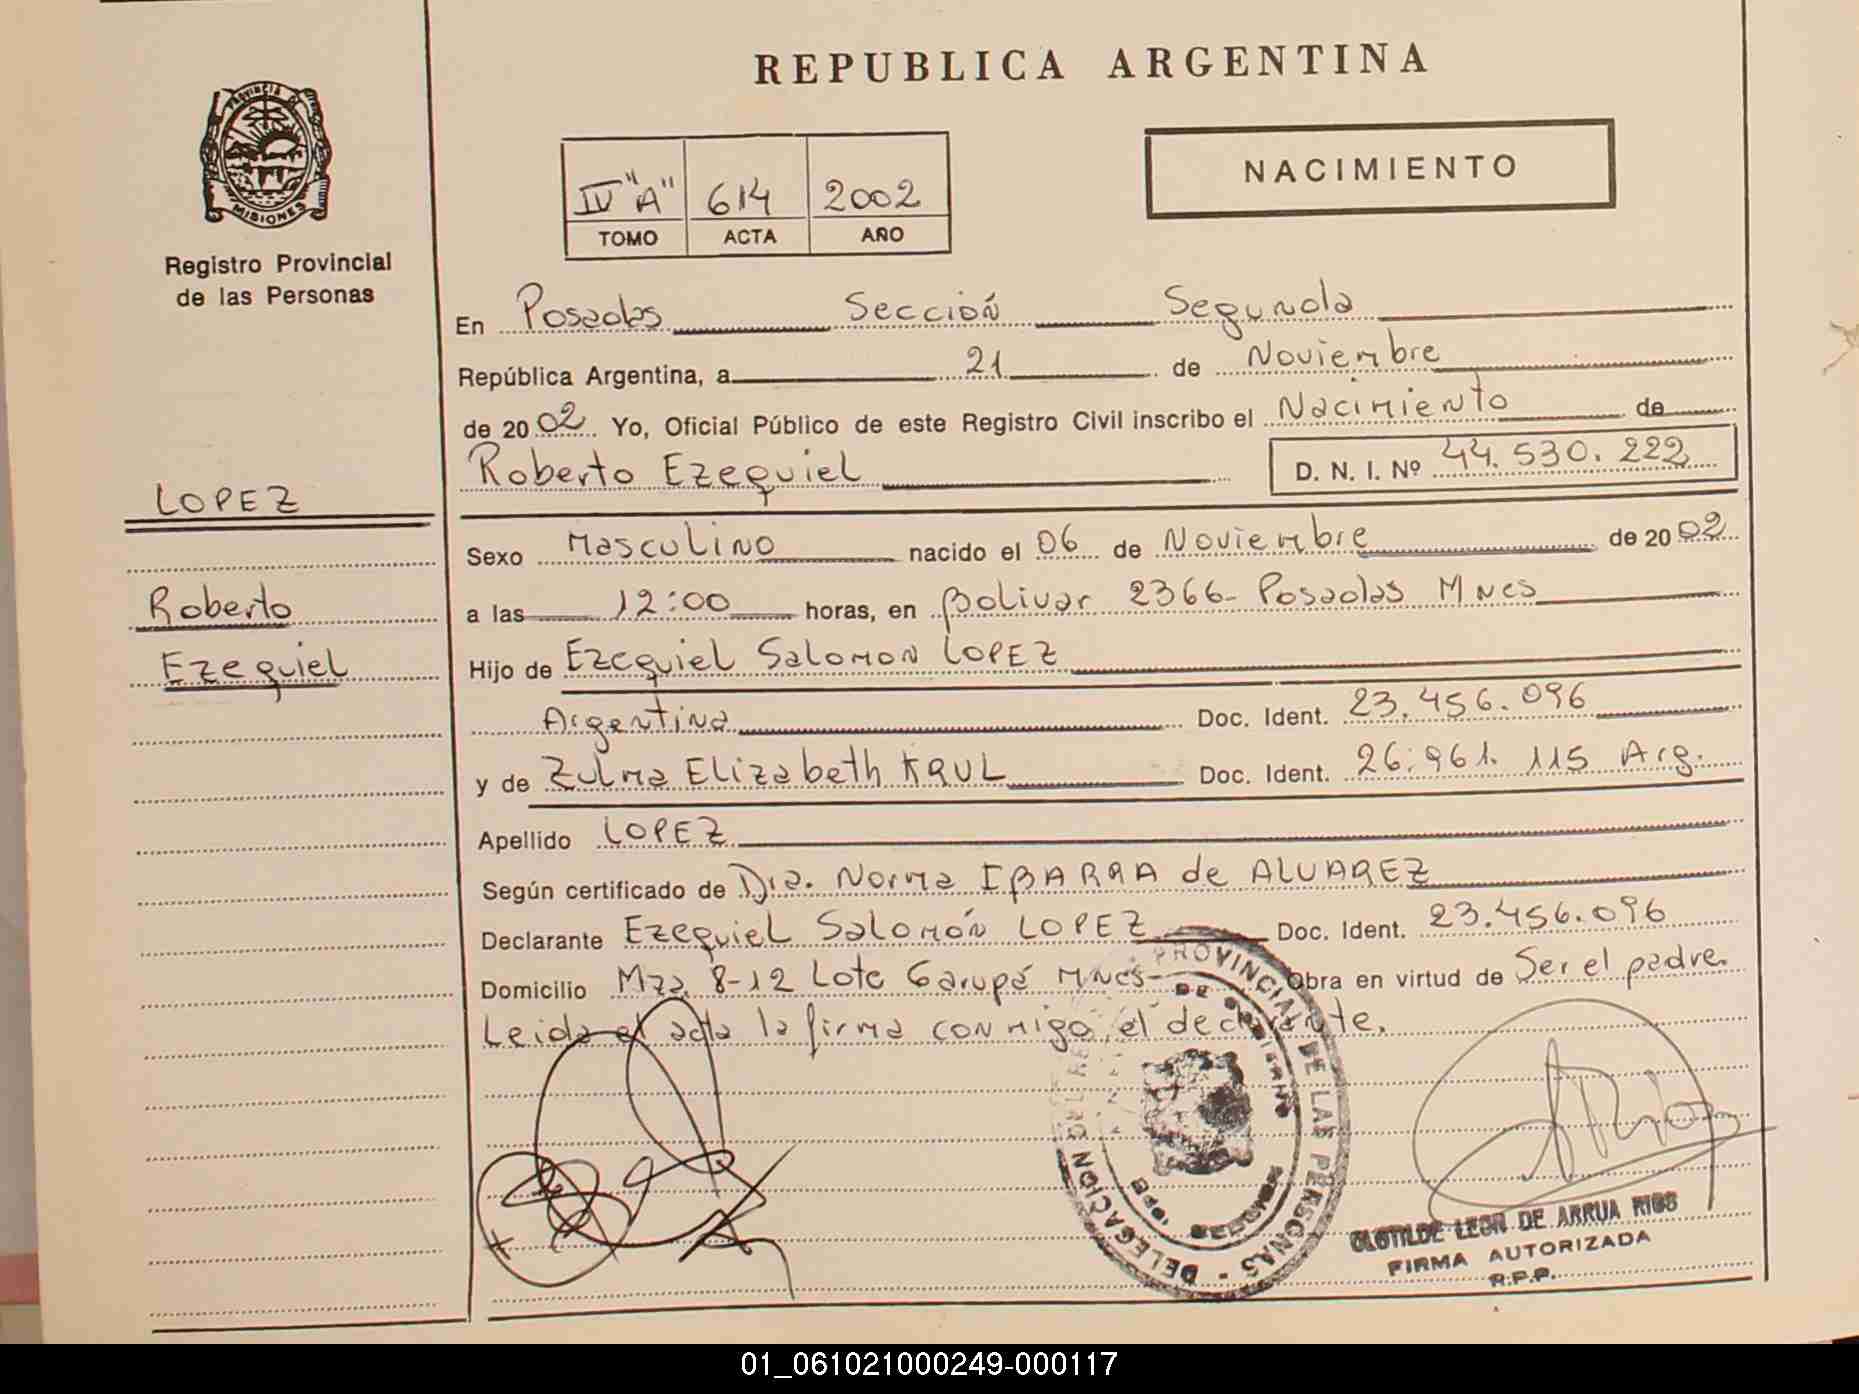 REPUBLICA ARGENTINA
PROVINCIA DE
MISIONES
Registro Provincial
de las Personas
IV "A" 614 2002
TOMO ACTA AÑO
NACIMIENTO
En Posadas Sección Segunda
República Argentina, a 21 de Noviembre
de 2002 Yo, Oficial Público de este Registro Civil inscribo el Nacimiento de
Roberto Ezequiel D. N. I. Nº 44.530.222
LOPEZ
Roberto
Ezequiel
Sexo Masculino nacido el 06 de Noviembre de 2002
a las 12:00 horas, en Bolivar 2366- Posadas Mnes
Hijo de Ezequiel Salomon LOPEZ
Argentina Doc. Ident. 23.456.096
y de Zulma Elizabeth KRUL Doc. Ident. 26.961.115 Arg.
Apellido LOPEZ
Según certificado de Dra. Norma IBARRA de ALVAREZ
Declarante Ezequiel Salomón LOPEZ Doc. Ident. 23.456.096
Domicilio Mza. 8-12 Lote Garupá Mnes- Obra en virtud de Ser el padre.
Leida el acta la firma conmigo, el declarante.
PROVINCIAL DE LAS PERSONAS - DELEGACION
CLOTILDE LEON DE ARRUA RIOS
FIRMA AUTORIZADA
R.P.P.
01_061021000249-000117